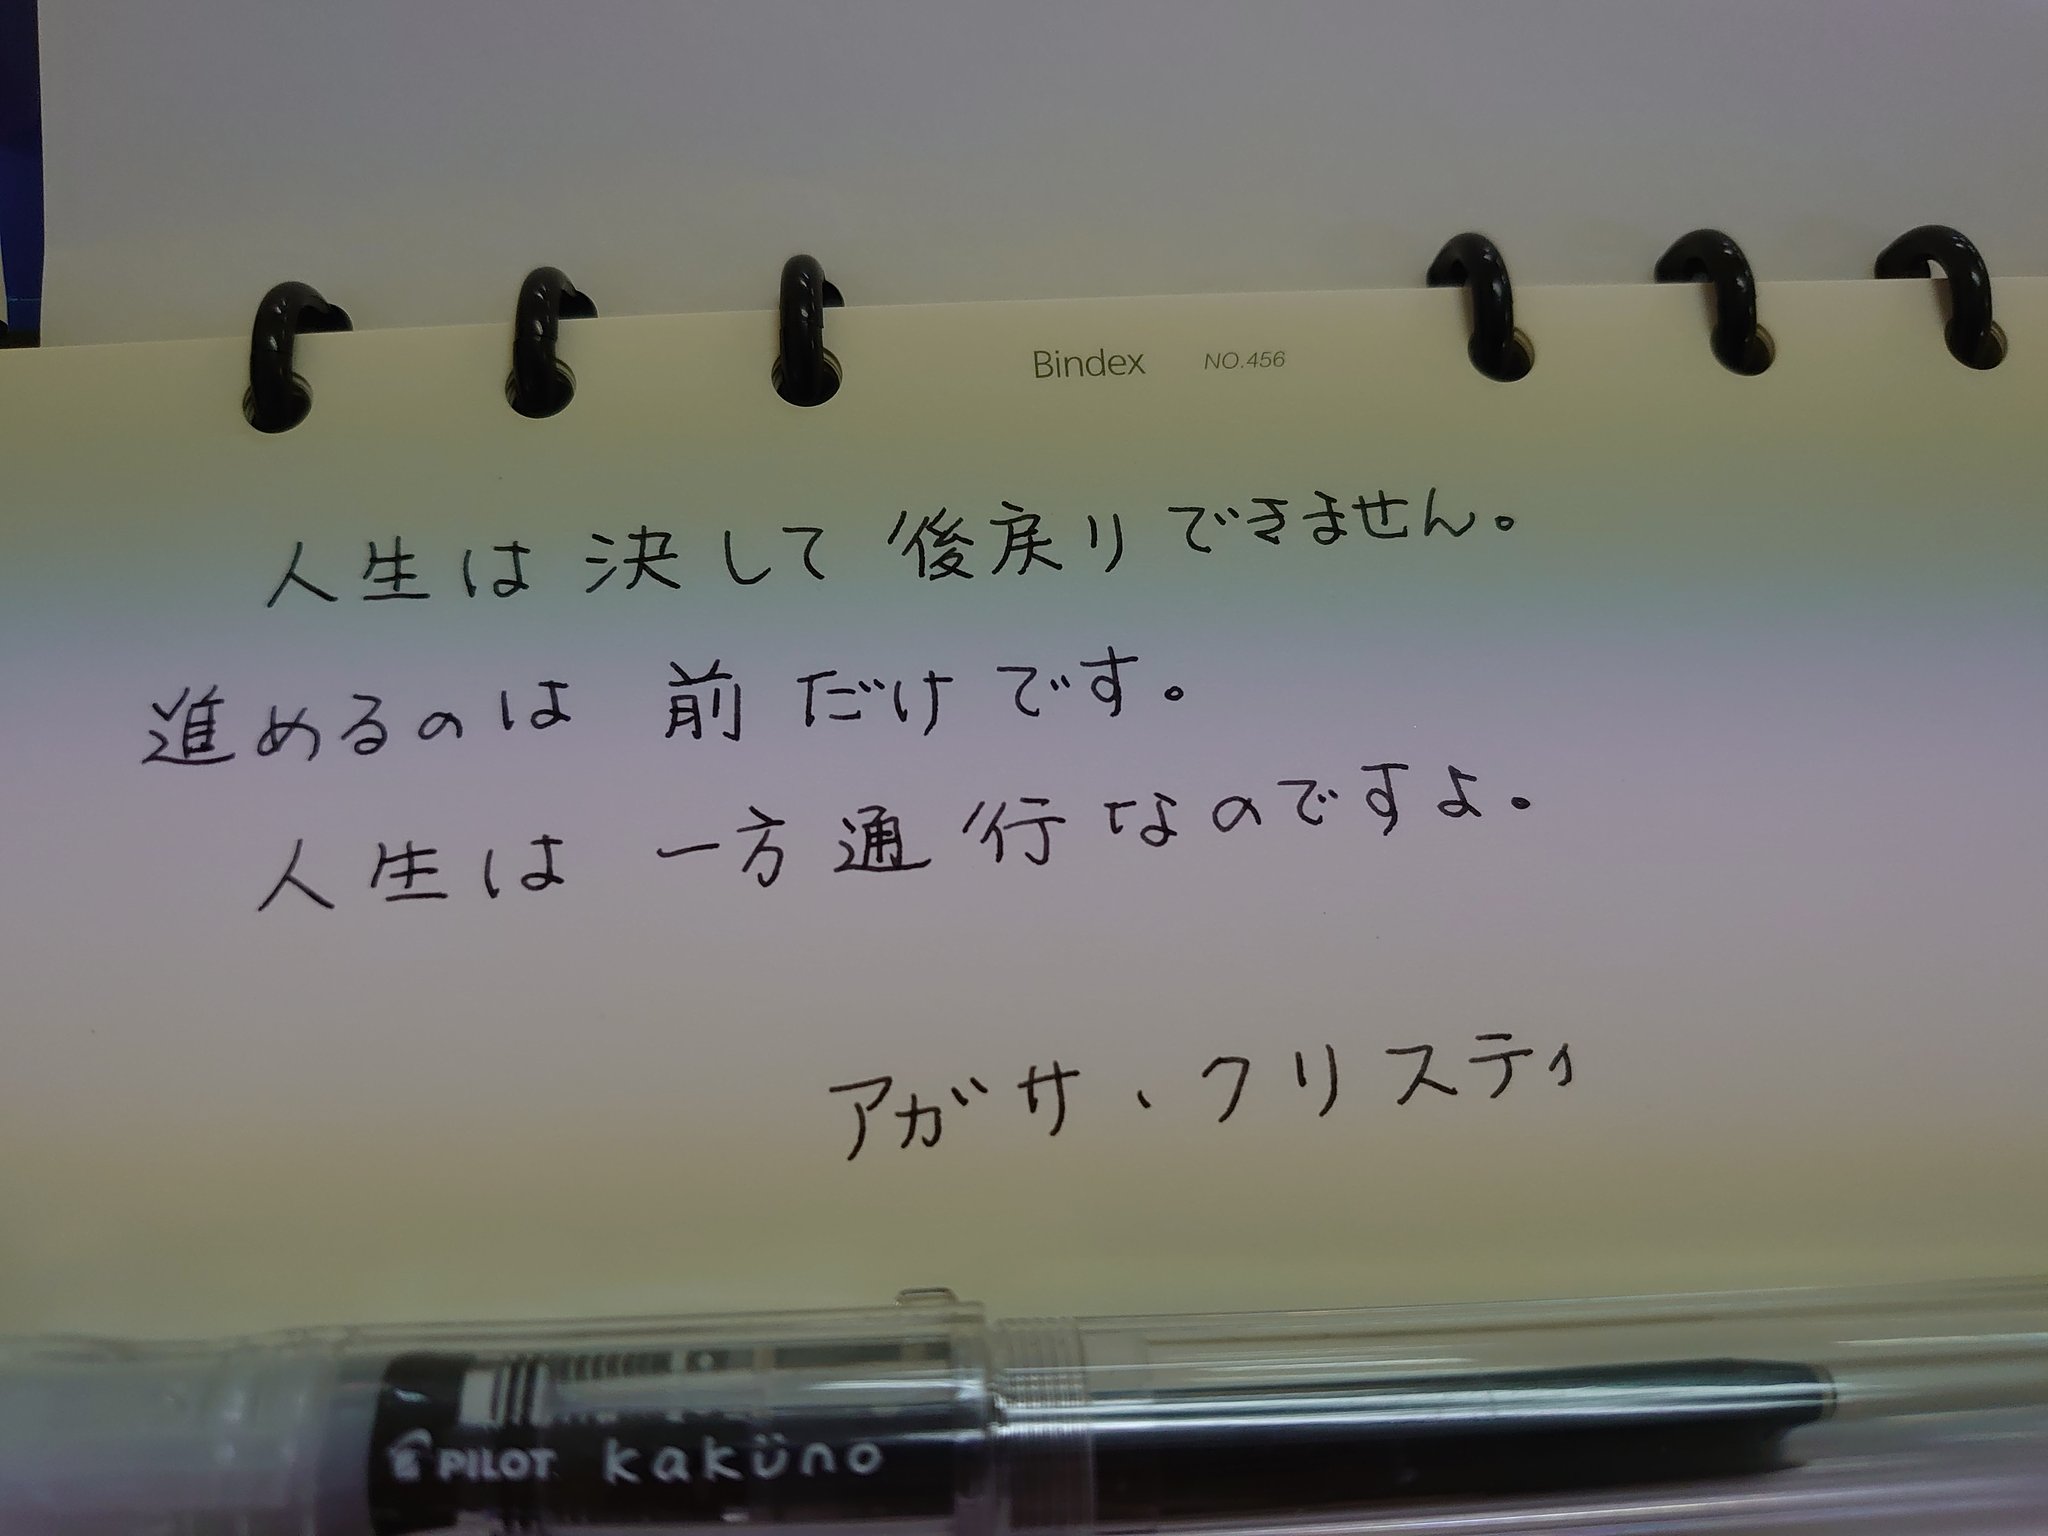 Bindex NO.456
人生は決して後戻りできません。
進めるのは前だけです。
人生は一方通行なのですよ。
アガサ、クリスティ
PILOT kaküno